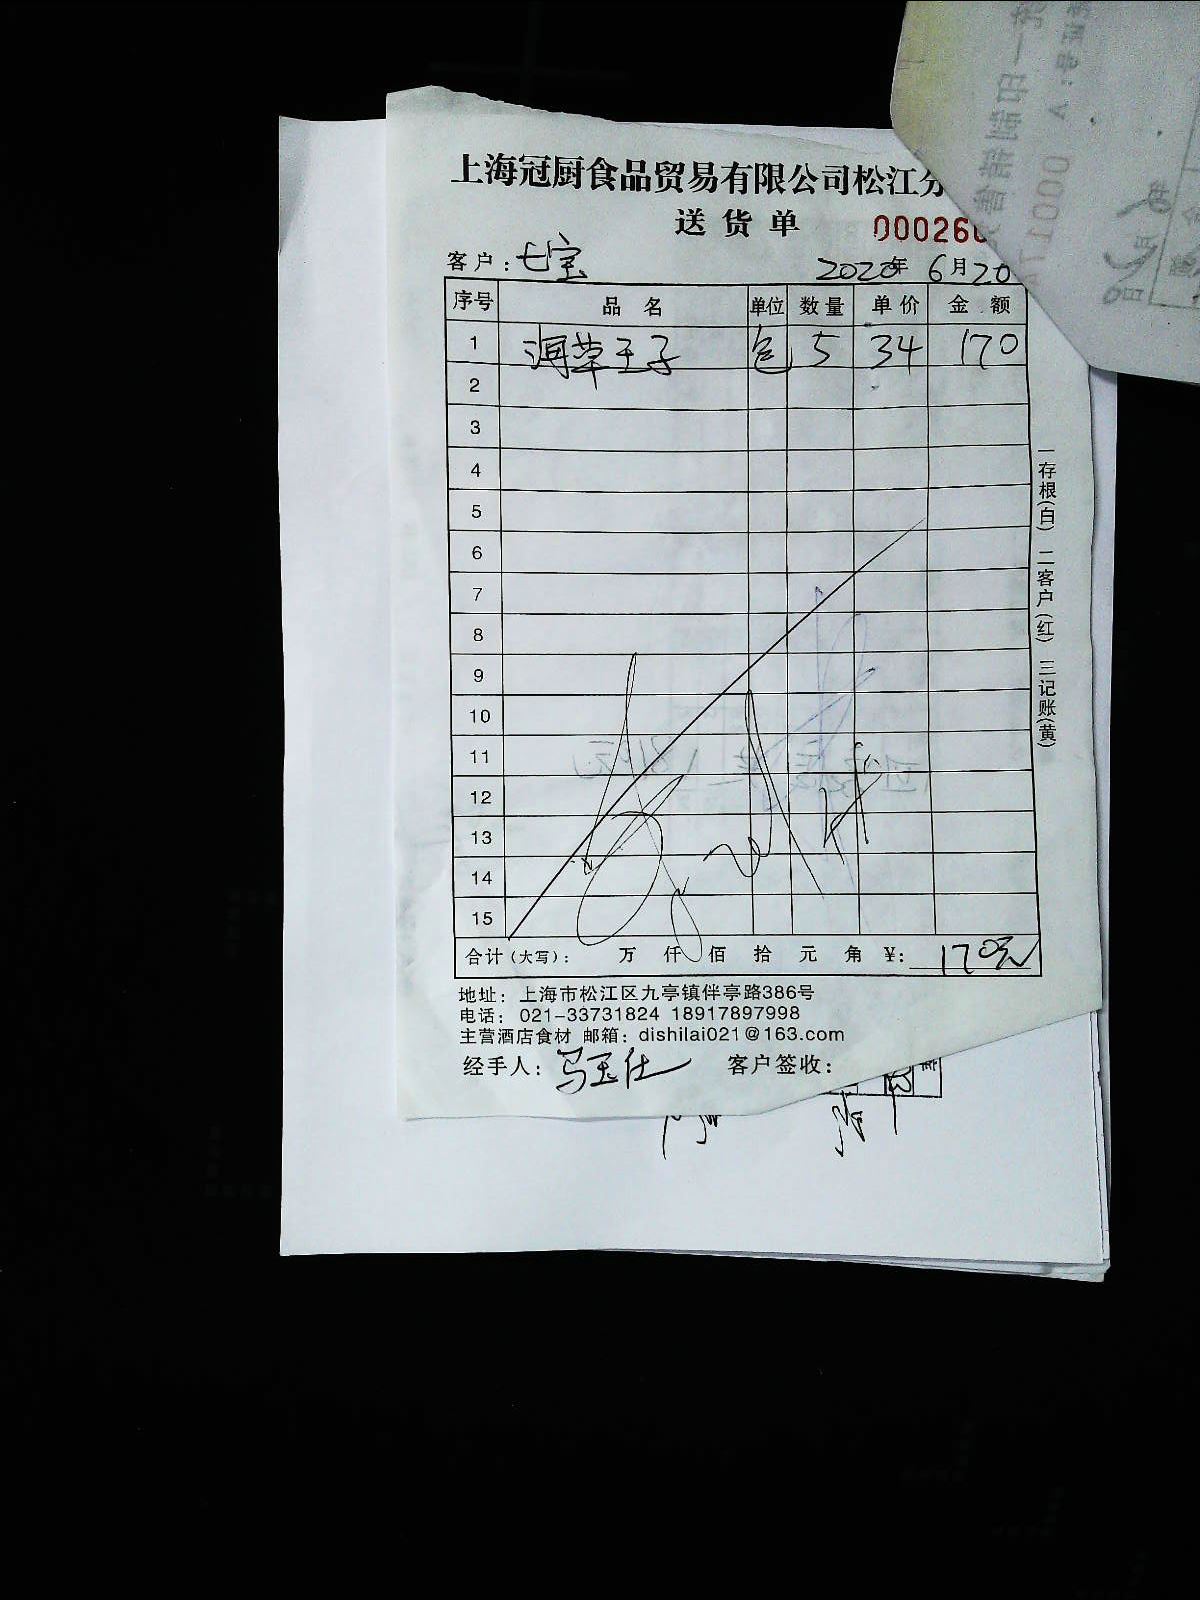 上海冠厨食品贸易有限公司松江分
送货单 00026
客户: 七宝 2020年 6月20
序号 品名 单位 数量 单价 金额
1 海草王子 包 5 34 170
2
3
4
5
6
7
8
9
10
11
12
13
14
15
合计(大写): 万 仟 佰 拾 元 角 ¥: 170元
地址: 上海市松江区九亭镇伴亭路386号
电话: 021-33731824 18917897998
主营酒店食材 邮箱: dishilai021@163.com
经手人: 马玉仕 客户签收:
一存根(白) 二客户(红) 三记账(黄)